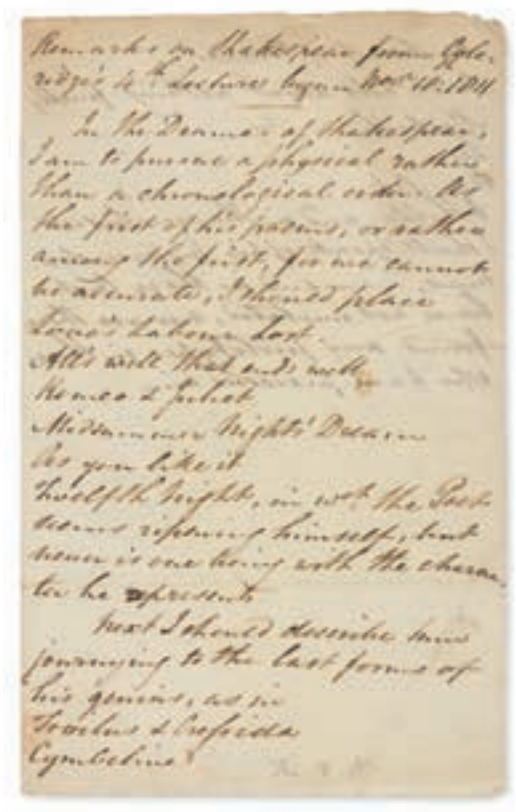 Remarks on Shakespear from Cole-
ridge's 4th Lectures begun Novr 18: 1811
In the Dramas of Shakespear,
I am to pursue a physical rather
than a chronological order. As
the first of his poems, or rather
among the first, for we cannot
be accurate, I should place
Love's Labour Lost.
All's well that ends well
Romeo & Juliet
Midsummer Nights' Dream
As you like it
Twelfth Night, in wch the Poet
seems ripening himself, but
never is one being with the charac-
ter he represents
Next I should describe him
journeying to the last forms of
his genius, as in
Troilus & Cressida
Cymbeline